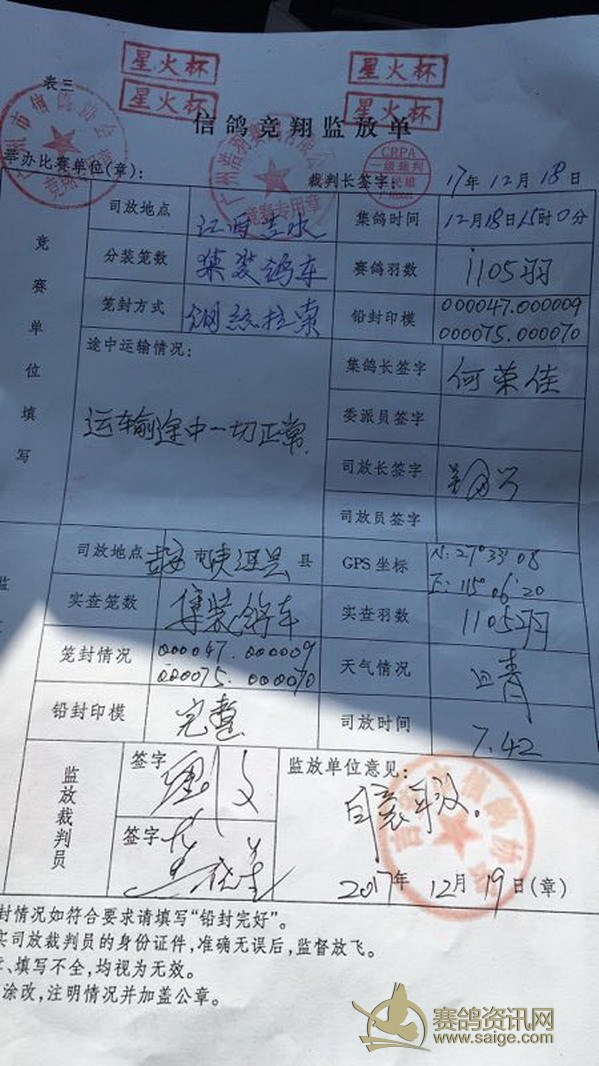 星火杯 星火杯
星火杯 星火杯
表三
信鸽竞翔监放单
举办比赛单位(章): 裁判长签字: 17年12月18日
CRPA
一级裁判
竞赛单位填写
司放地点 江西吉水 集鸽时间 12月18日15时0分
分装笼数 集装鸽车 赛鸽羽数 1105羽
笼封方式 钢丝拉索 铅封印模 000047.000009
000075.000070
途中运输情况: 集鸽长签字 何荣佳
运输途中一切正常 委派员签字
司放长签字
司放员签字
司放地点 县 GPS坐标 N:27°33'08
E:115°06'20
实查笼数 集装鸽车 实查羽数 1105羽
笼封情况 000047.000009
000075.000070 天气情况
铅封印模 完整 司放时间 7.42
监放裁判员 签字 监放单位意见:
签字
2017年12月19日(章)
封情况如符合要求请填写“铅封完好”。
实司放裁判员的身份证件,准确无误后,监督放飞。
、填写不全,均视为无效。
涂改,注明情况并加盖公章。
赛鸽资讯网
www.saige.com